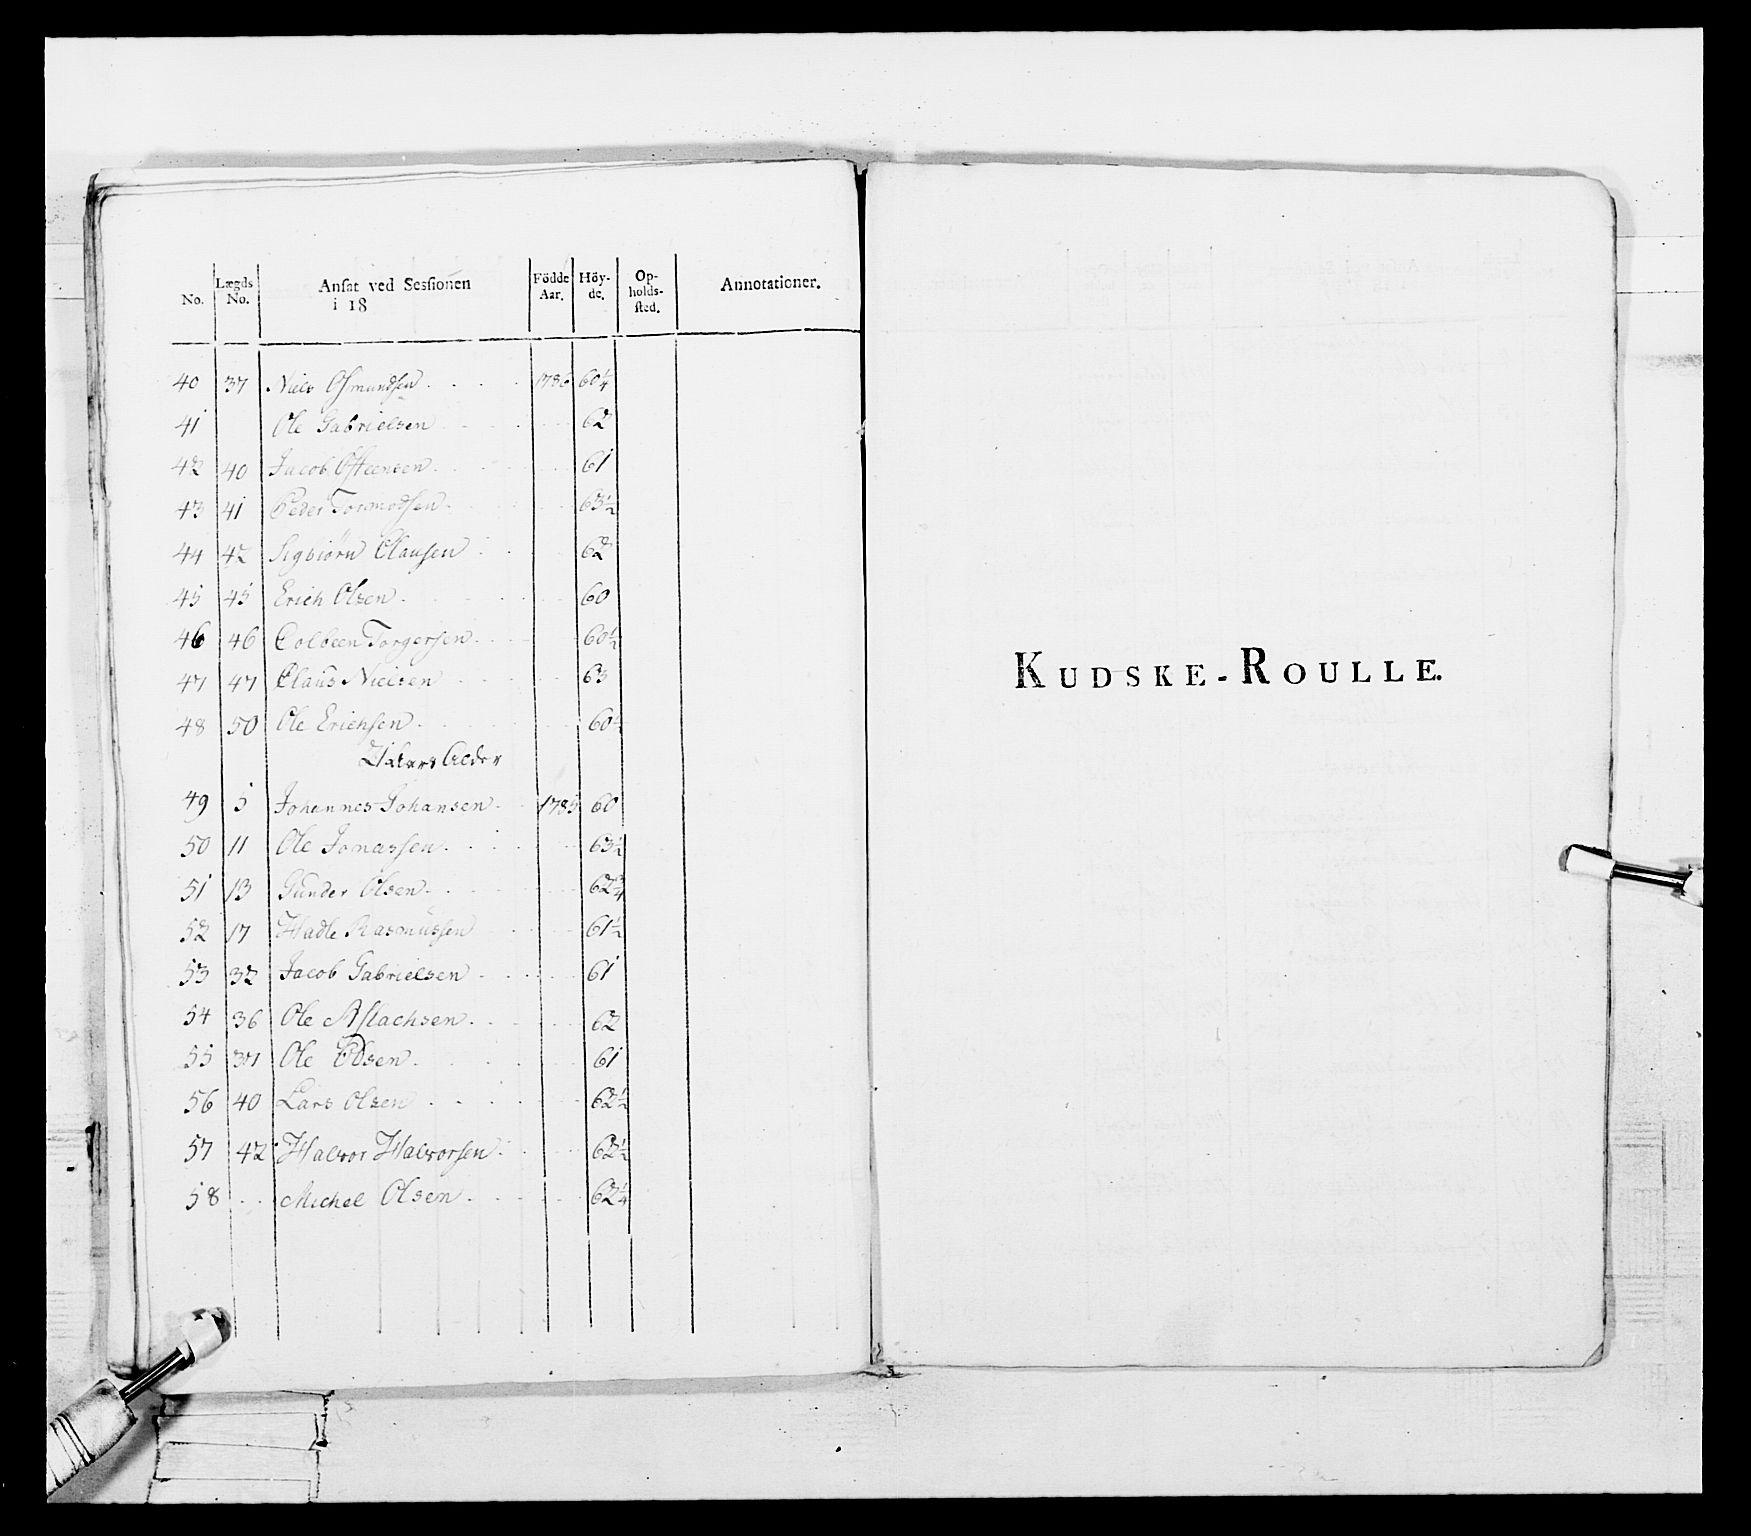 No. Lægds No. Ansat ved Sessionen i 18 Födde Aar. Höy-de. Op-holds-sted. Annotationer.
40 37 Niels Osmundsen . . . . 1786 60 1/4
41 Ole Gabrielsen . . . . 62
42 40 Jacob Osteensen . . . . 61
43 41 Peder Tormodsen . . . . 63 1/2
44 42 Sigbiörn Clausen . . . . 62
45 45 Erich Olsen . . . . 60
46 46 Colbeen Torgersen . . . . 60 1/2
47 47 Claus Nielsen . . . . 63
48 50 Ole Erichsen . . . . 60
Aars Alder
49 5 Johannes Johansen . . 1785 60
50 11 Ole Jonassen . . . . 63 1/2
51 13 Gunder Olsen . . . . 62 3/4
52 17 Hadle Rasmussen . . . . 61 1/2
53 32 Jacob Gabrielsen . . . . 61
54 36 Ole Aslachsen . . . . 62
55 37 Ole . . . . 61
56 40 Lars Olsen . . . . 62 1/2
57 42 Halvor Halvorsen . . . . 62 1/2
58 . . Michel Olsen . . . . 62 1/4
KUDSKE-ROULLE.